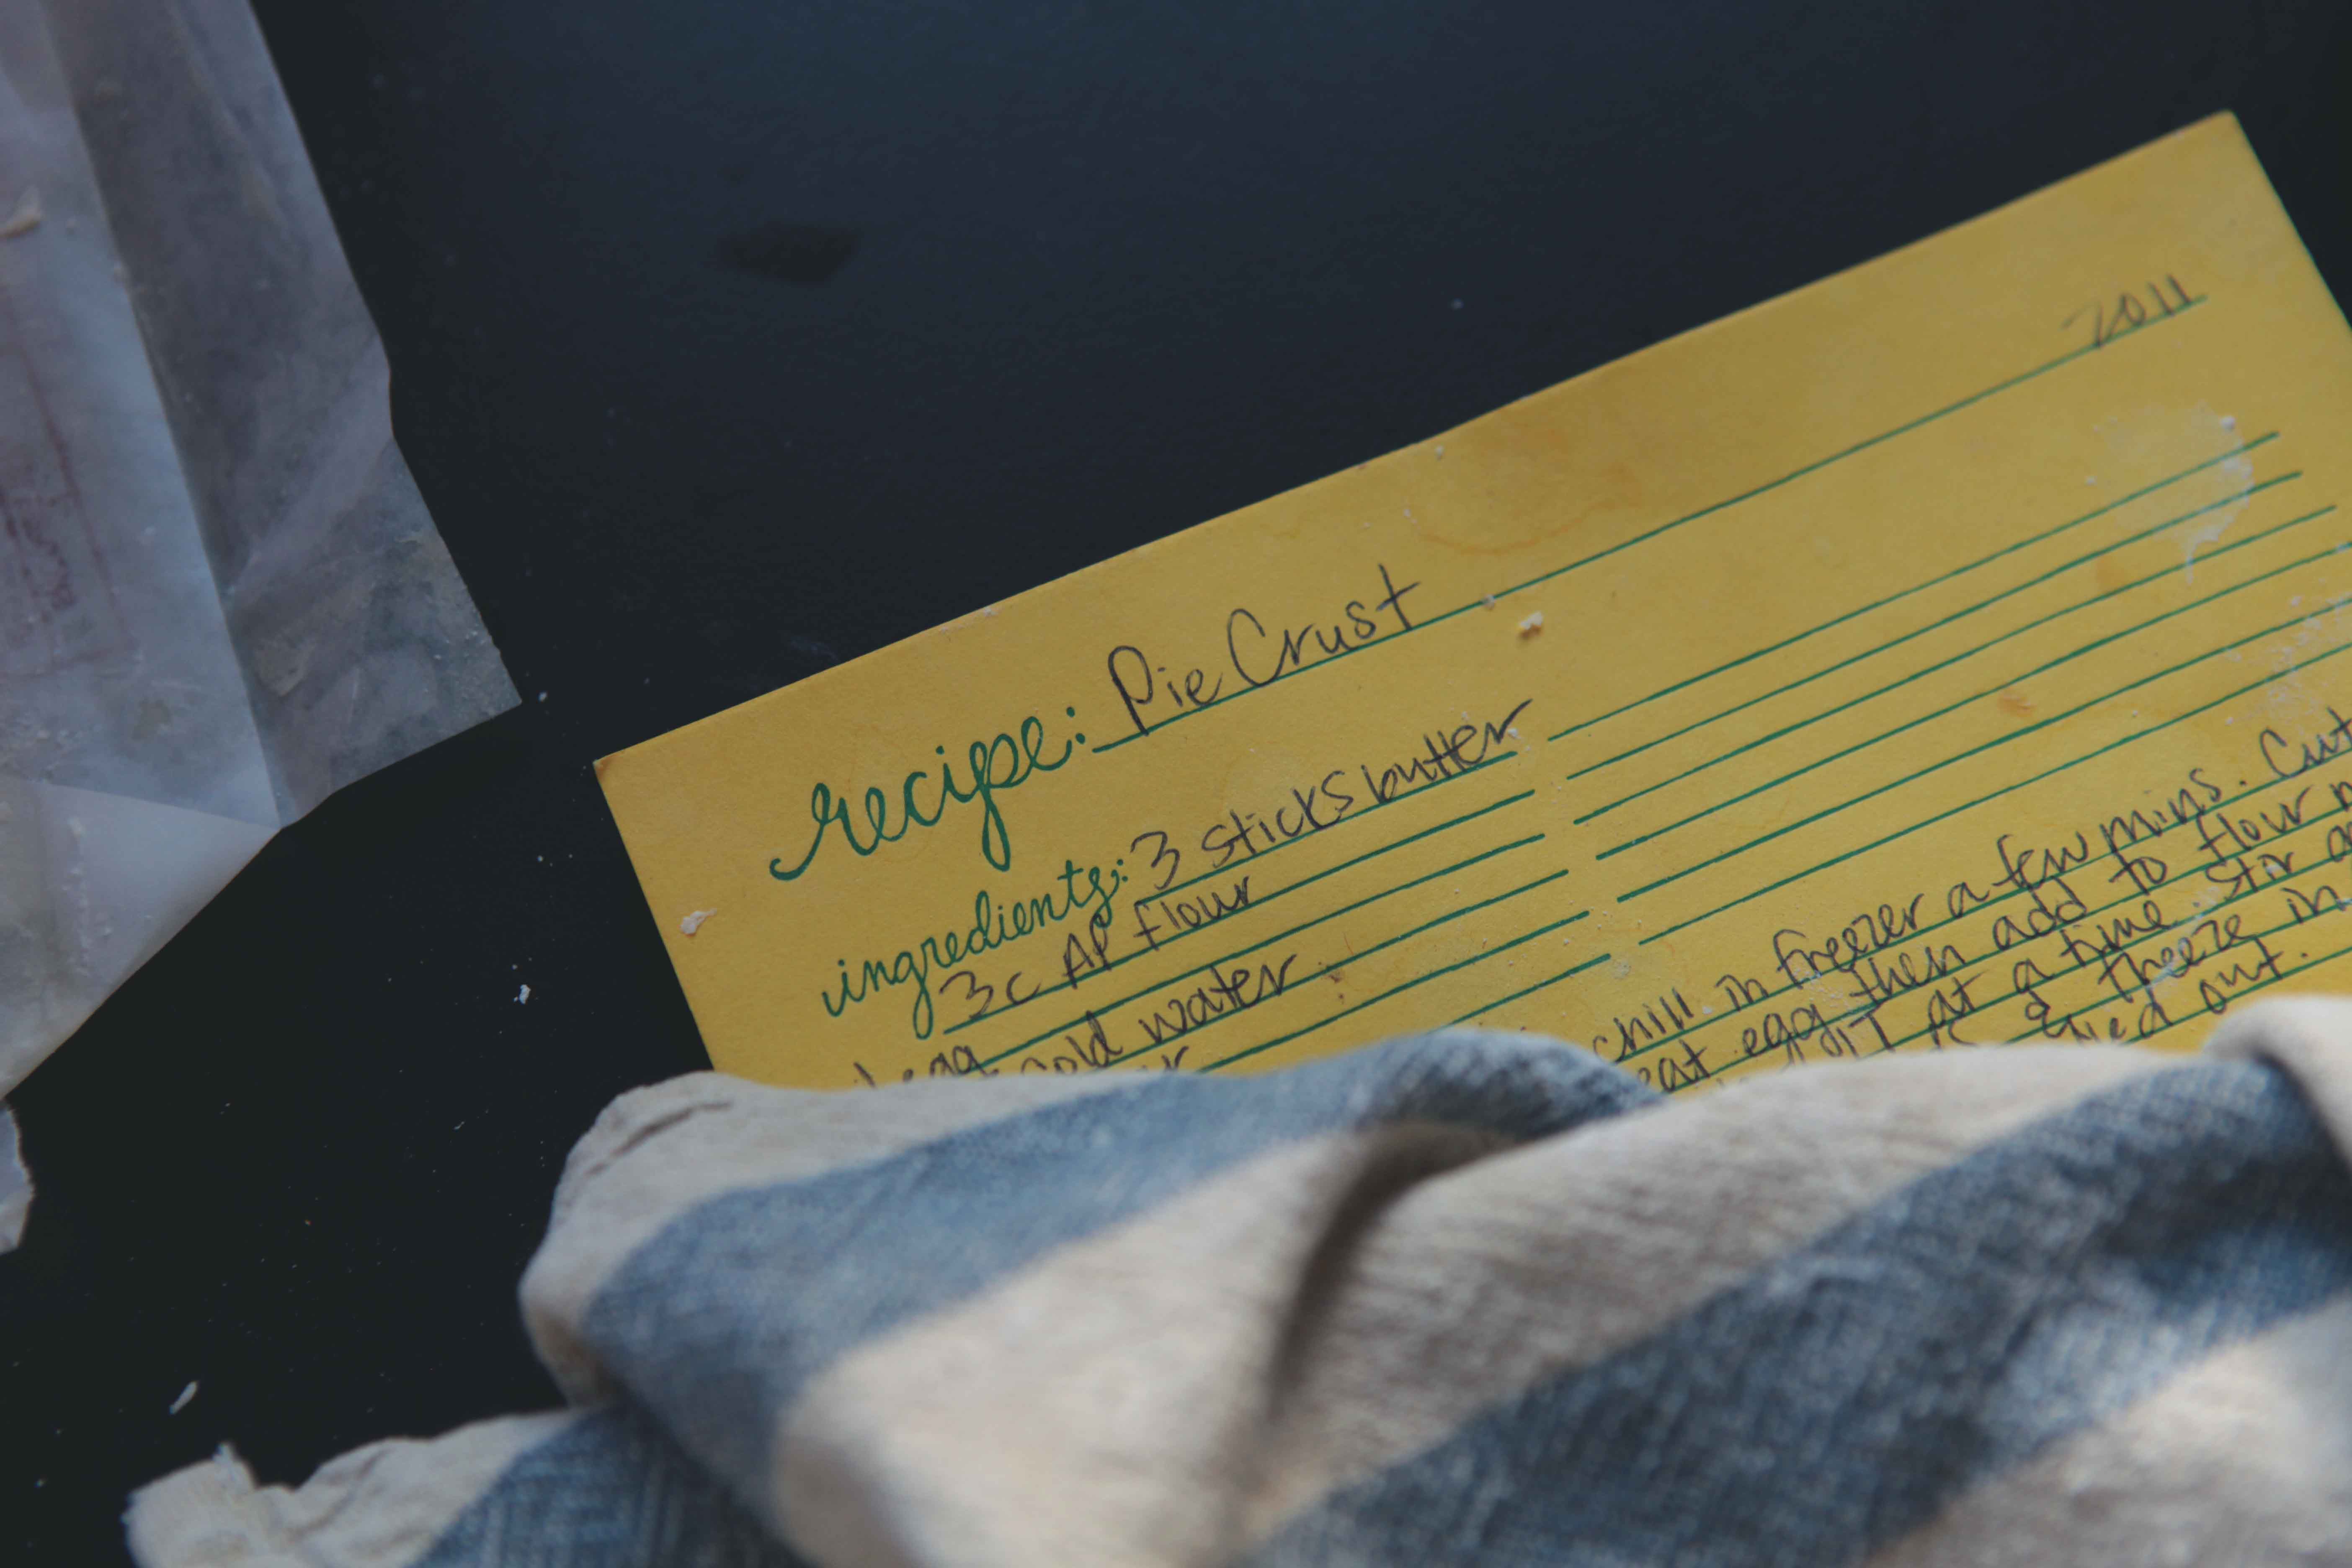 2011
recipe: Pie Crust
ingredients: 3 sticks butter
3c AP flour
egg
cold water
chill in freezer a few mins. Cut
eat egg then add to flour
at a time. Stir
& freeze in
out.